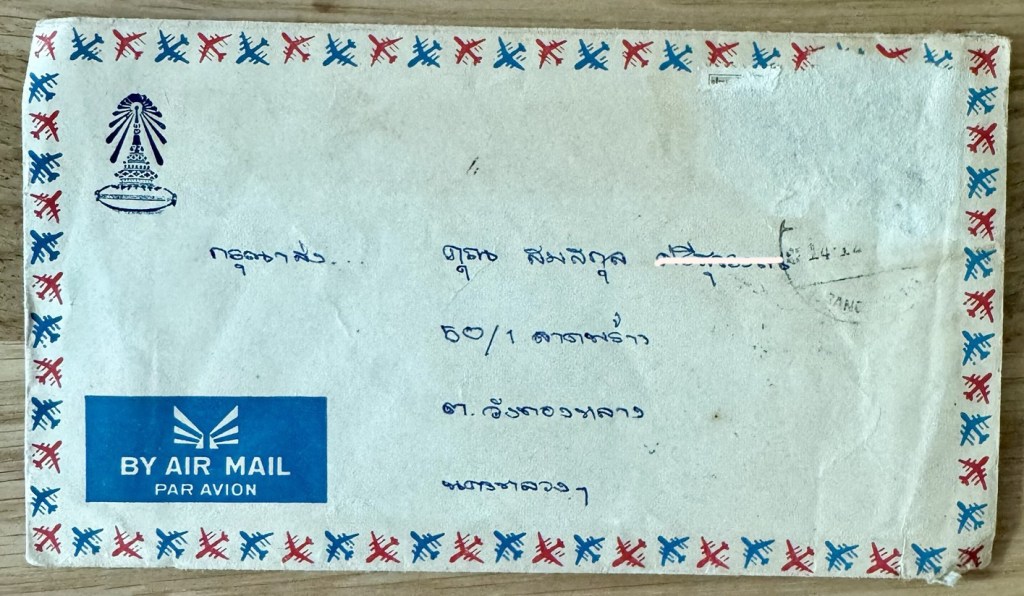 กรุณาส่ง... คุณ สมสกุล
50/1 ลาดพร้าว
ต. วังทองหลาง
นครหลวงฯ
BY AIR MAIL
PAR AVION